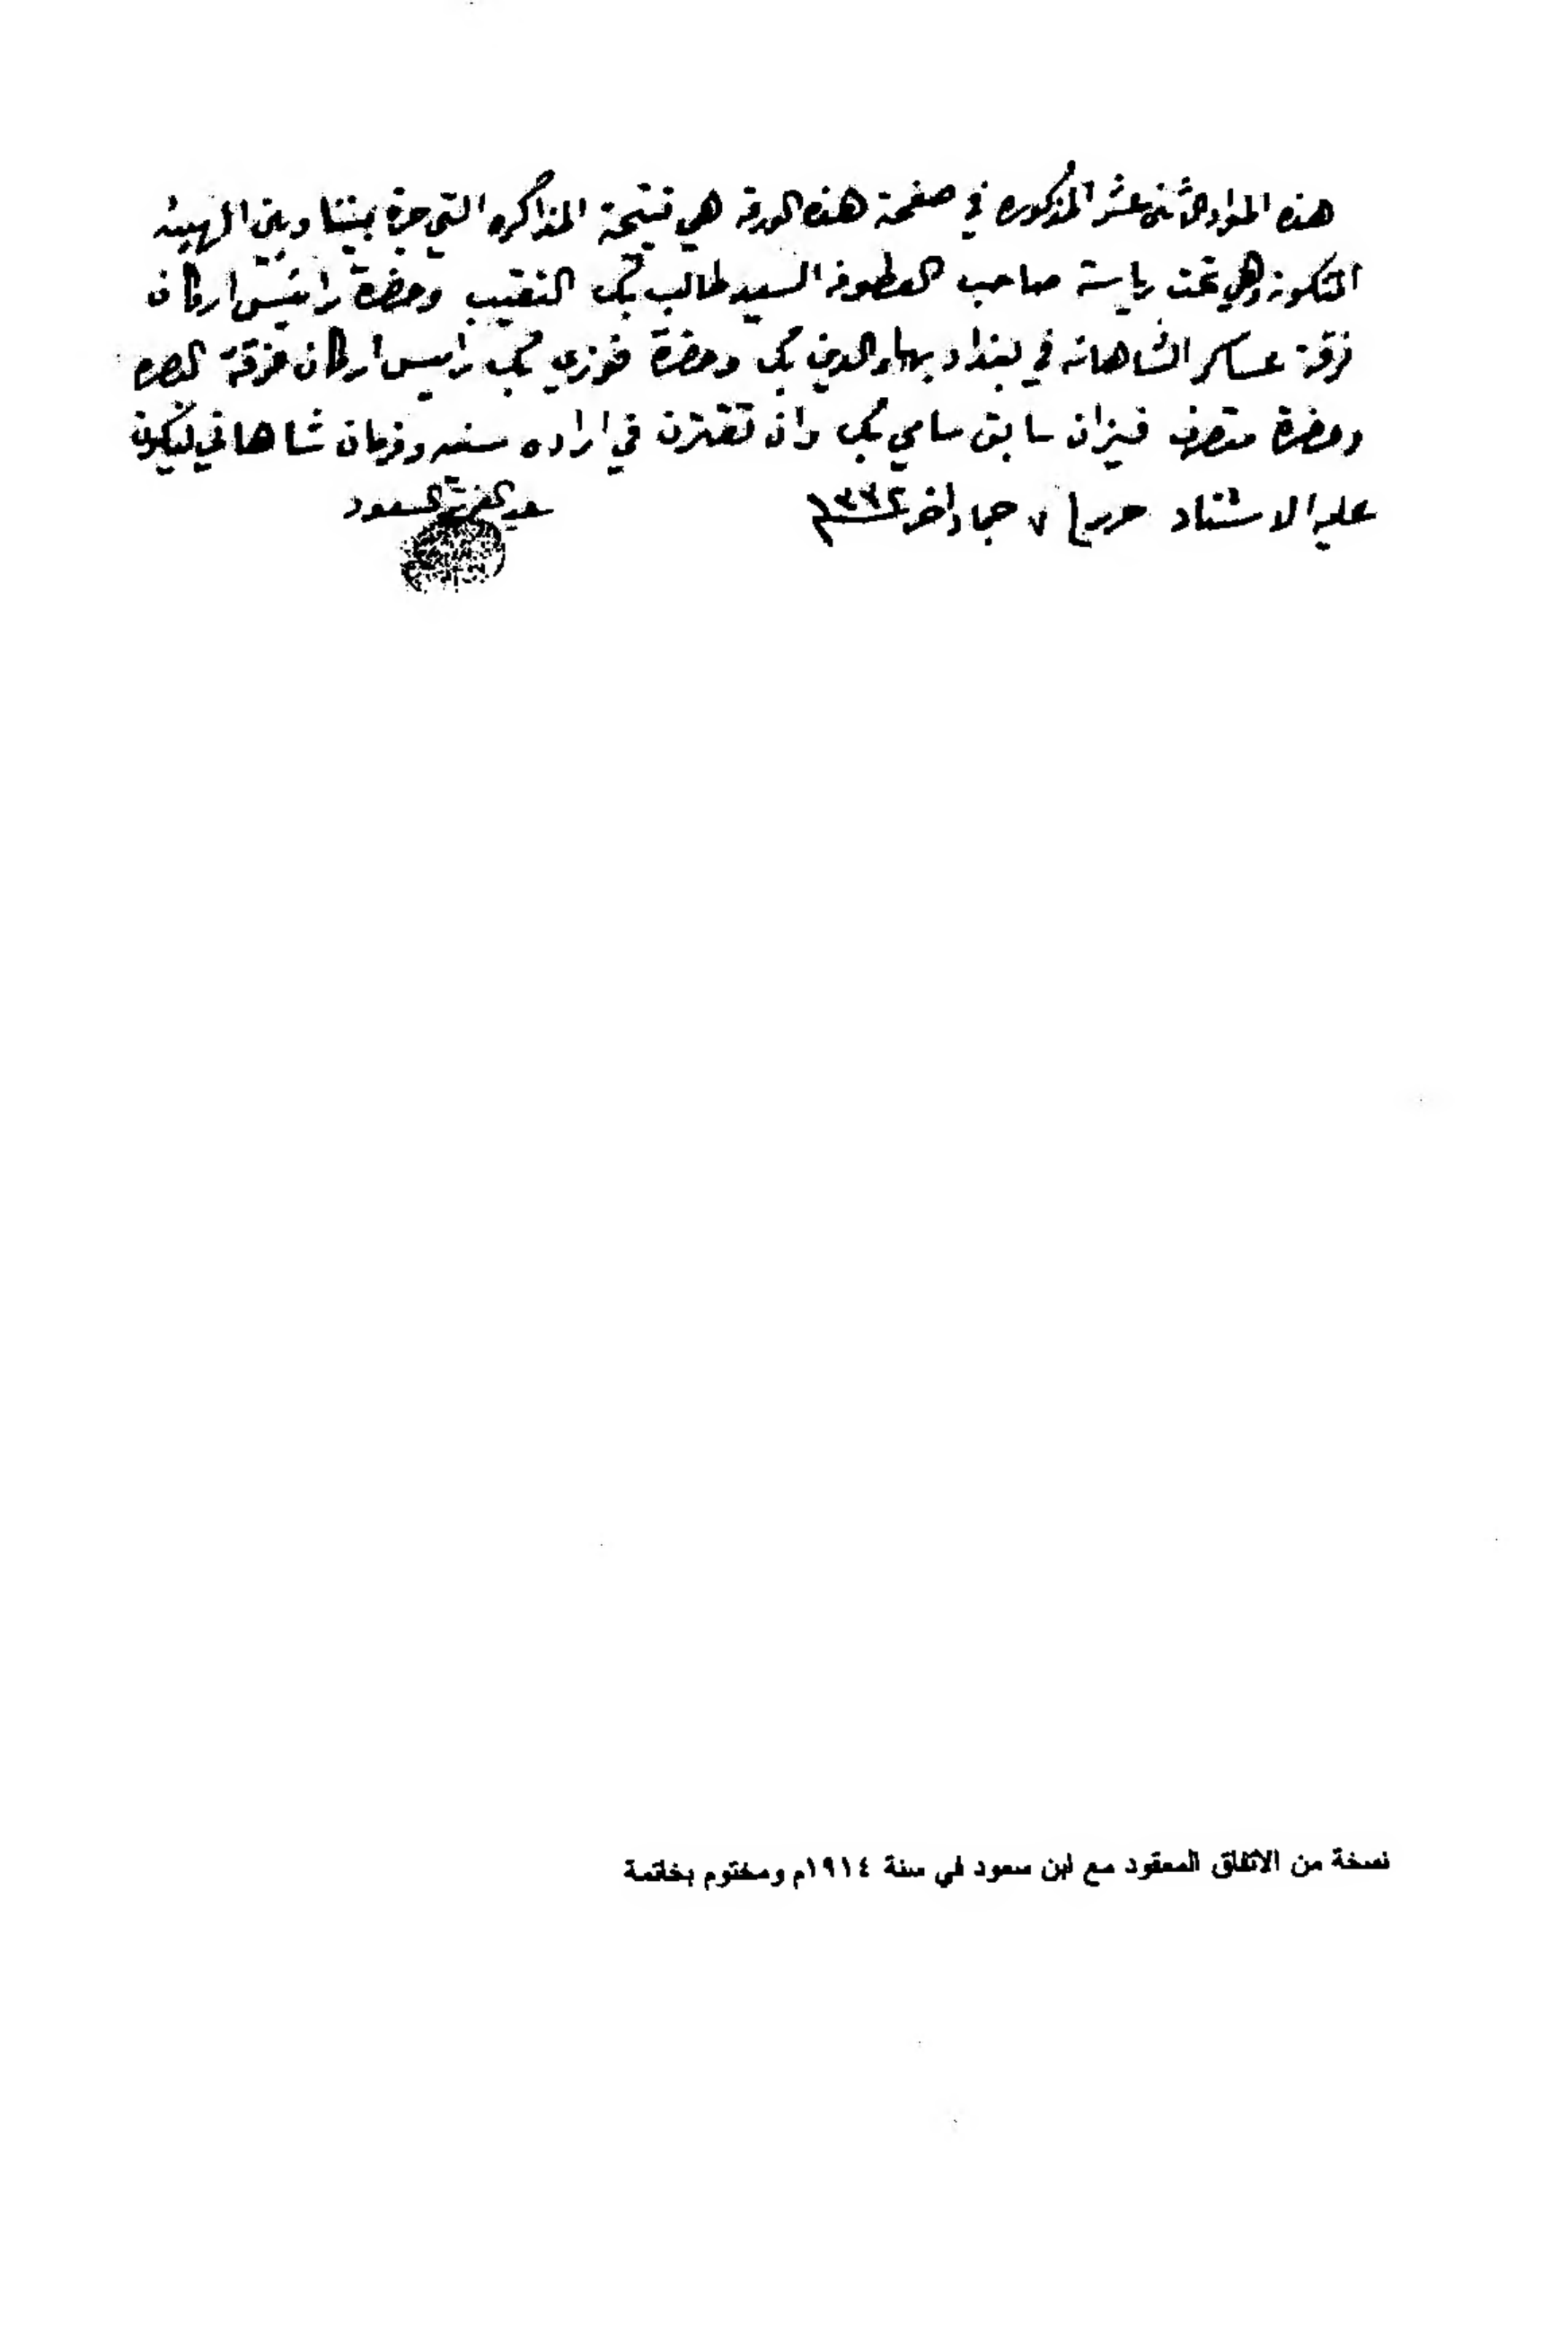 هذه المواد الاثنى عشر المذكوره في صفحة هذه الورقه هي نتيجة المذاكره التي جرة بيننا وبين الهيئه
المتكونه وهي تحت رياسة صاحب العطوفه السيد طالب بك النقيب وحضرة رائيس اركان
فرقة عساكر الشاهانه في بغداد بهاو الدين بك وحضرة فوزي بك رائيس اركان فرقة البصره
وحضرة متصرف فيزان سابق سامي بك وان تقترن في اراده سنيه وفرمان شاهاني ليكون
عليه الاستناد حرر ٧ جماد اخر ١٣٣٢
عبد العزيز السعود
نسخة من الاتفاق المعقود مع ابن سعود في سنة ١٩١٤م ومختوم بخاتمة